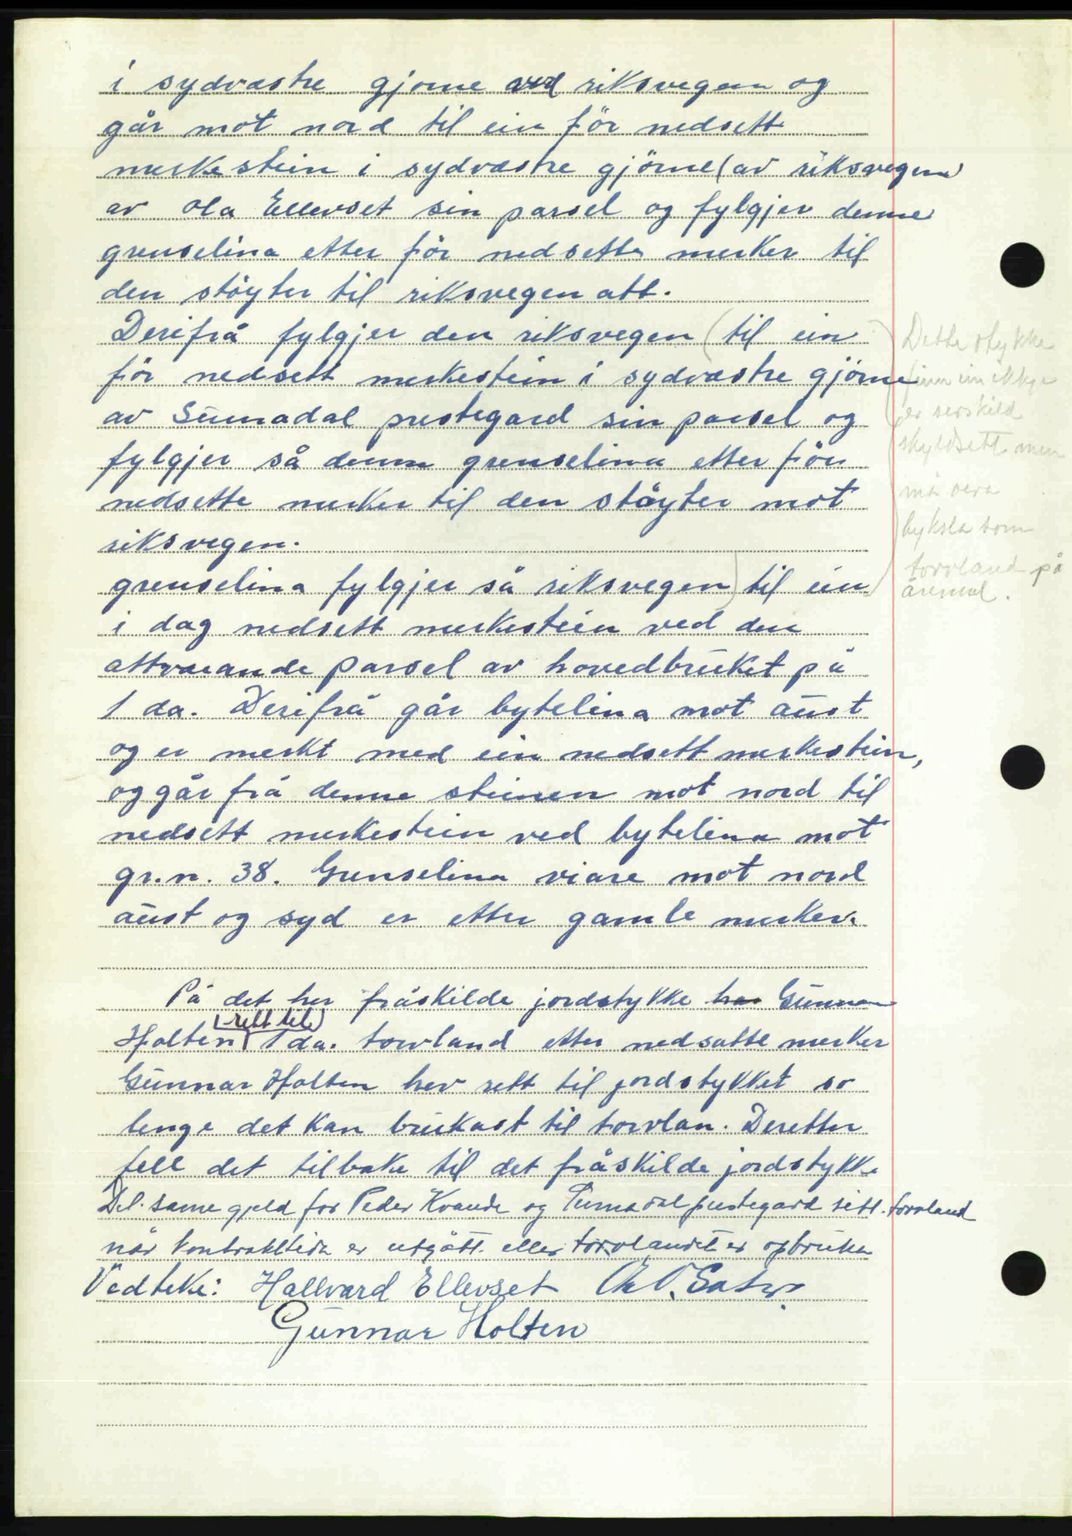 i sydvæstre gjørne ved riksvegen og
går mot nord til ein för nedsett
merkestein i sydvæstre gjörne (av riksvegen)
av Ola Ellevset sin parsel og fylgjer denne
grenselina etter för nedsette merker til
den støyter til riksvegen att.
Derifrå fylgjer den riksvegen (til ein
för nedsett merkestein i sydvæstre gjörne
av Surnadal prestegard sin parsel og
fylgjer så denne grenselina etter för
nedsette merker til den støyter mot
riksvegen.
grenselina fylgjer så riksvegen) til ein
i dag nedsett merkestein ved den
attværande parsel av hovedbruket på
1 da. Derifrå går bytelina mot aust
og er merkt med ein nedsett merkestein,
og går frå denne steinen mot nord til
nedsett merkestein ved bytelina mot
gr.n. 38. Grenselina viare mot nord
aust og syd er etter gamle merker.
På det her fråskilde jordstykke har Gunnar
rett til
Holten 1 da. torvland etter nedsatte merker
Gunnar Holten hev rett til jordstykket so
lenge det kan brukast til torvlan. Deretter
fell det tilbake til det fråskilde jordstykke
Det same gjeld for Peder Kvande og Surnadal prestegard sitt torvland
når kontrakttida er utgått eller torvlandet er opbruka
Vedteke: Hallvard Ellevset
Gunnar Holten
Dette stykke
finn ein ikkje
er serskild
skyldsett men
må vera
byksla som
torvland på
åremål.